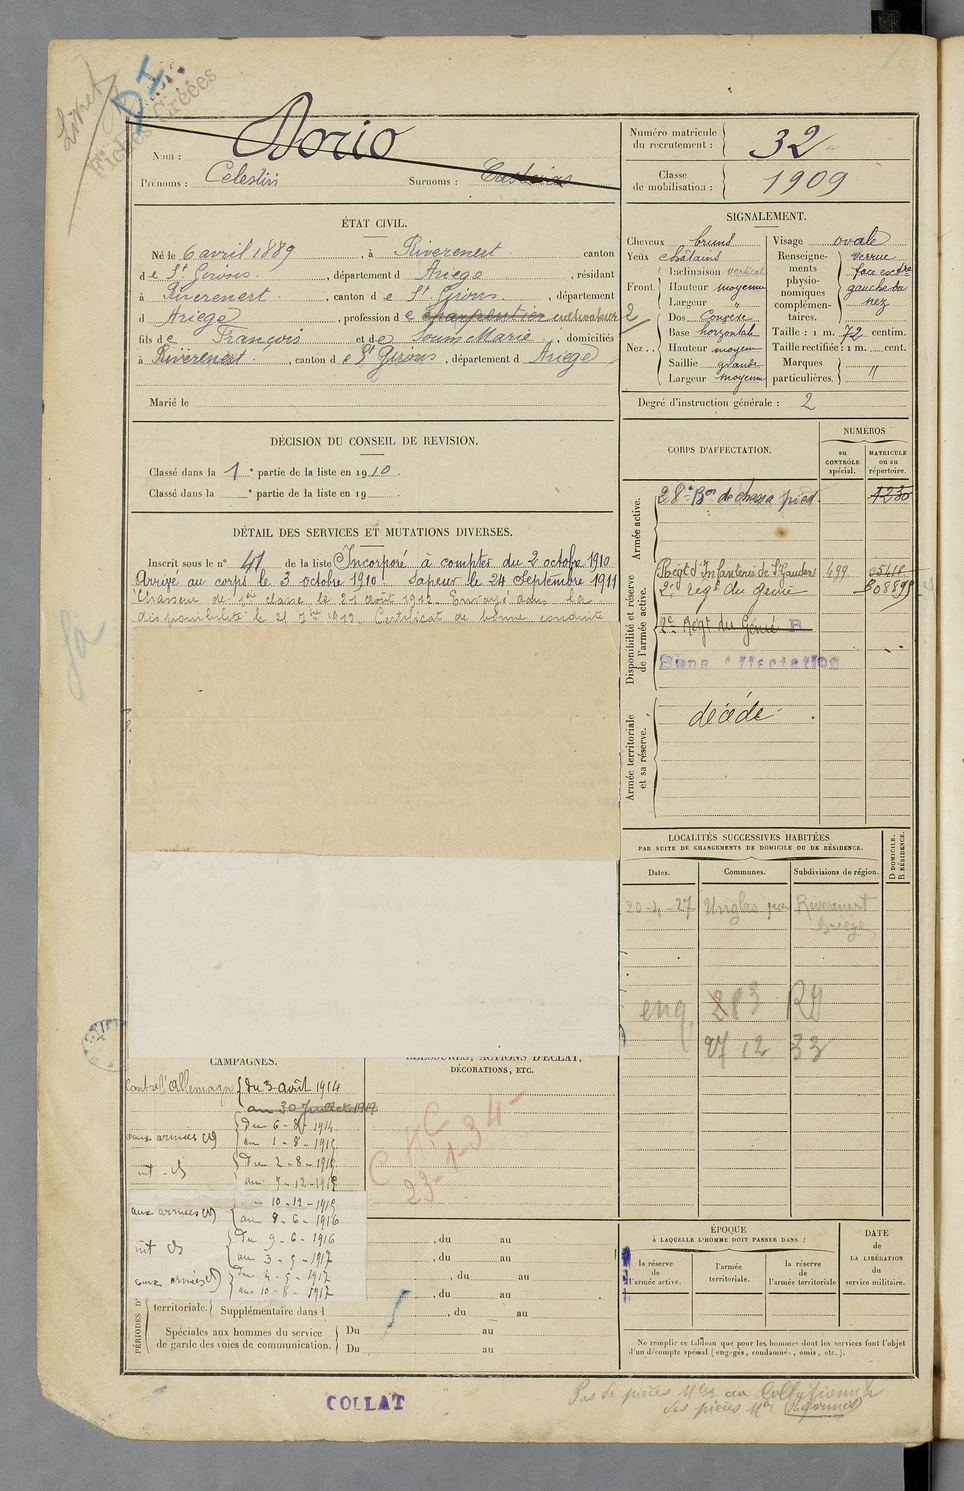 Fiches Créées
D I
Nom : Dorio
Prénoms : Celestin Surnoms :
Numéro matricule du recrutement : 32
Classe de mobilisation : 1909
ÉTAT CIVIL.
Né le 6 avril 1889, à Riverenert canton
de St Girons, département d Ariege, résidant
à Riverenert, canton de St Girons, département
d Ariege, profession de charpentier cultivateur
fils de François et de Soum Marie, domiciliés
à Riverenert, canton de St Girons, département d Ariege
Marié le
SIGNALEMENT.
Cheveux bruns
Yeux châtains
Front. Inclinaison verticale
Hauteur moyenne
Largeur "
Nez.. Dos Convexe
Base horizontale
Hauteur moyenne
Saillie grande
Largeur moyenne
Visage ovale
Renseignements physionomiques complémentaires. verrue face externe gauche du nez
Taille : 1 m. 72 centim.
Taille rectifiée : 1 m. cent.
Marques particulières. "
Degré d'instruction générale : 2
DÉCISION DU CONSEIL DE REVISION.
Classé dans la 1e partie de la liste en 1910.
Classé dans la e partie de la liste en 19
DÉTAIL DES SERVICES ET MUTATIONS DIVERSES.
Inscrit sous le n° 41 de la liste Incorporé à compter du 2 octobre 1910
Arrivé au corps le 3 octobre 1910. Sapeur le 24 Septembre 1911
Chasseur de 1ère classe le 21 août 1912. Envoyé dans la
disponibilité le 27 7bre 1912. Certificat de bonne conduite
CORPS D'AFFECTATION.
NUMÉROS
au CONTRÔLE spécial.
MATRICULE ou au répertoire.
Armée active.
28e Bon de chass à pied 1230
Disponibilité et réserve de l'armée active.
Regt d'Infanterie de St Gaudens 499 05418
2e régt du génie
2e Régt du Génie B
Sans affectation
Armée territoriale et sa réserve.
décédé
LOCALITÉS SUCCESSIVES HABITÉES
PAR SUITE DE CHANGEMENTS DE DOMICILE OU DE RÉSIDENCE.
Dates. Communes. Subdivisions de région. D DOMICILE. R RÉSIDENCE.
20-4-27 Unglas par Riverenert
Ariege
27 12 33
CAMPAGNES.
contre l'Allemagne du 3 août 1914
au 30 Juillet 1919
aux armées du 6-8-1914
au 1-8-1915
int du 2-8-1915
au 9-12-1915
aux armées du 10-12-1915
au 8-6-1916
int du 9-6-1916
au 3-5-1917
aux armées du 4-5-1917
au 10-8-1917
BLESSURES, ACTIONS D'ÉCLAT,
DÉCORATIONS, ETC.
23-1-34
, du au
, du au
, du au
, du au
territoriale. Supplémentaire dans l , du au
Spéciales aux hommes du service de garde des voies de communication. Du au
Du au
PÉRIODES D
ÉPOQUE
À LAQUELLE L'HOMME DOIT PASSER DANS :
la réserve de l'armée active.
l'armée territoriale.
la réserve de l'armée territoriale
DATE de LA LIBÉRATION du service militaire.
Ne remplir ce tableau que pour les hommes dont les services font l'objet
d'un décompte spécial (engagés, condamnés, omis, etc.).
COLLAT
Pas de pièces
des pièces